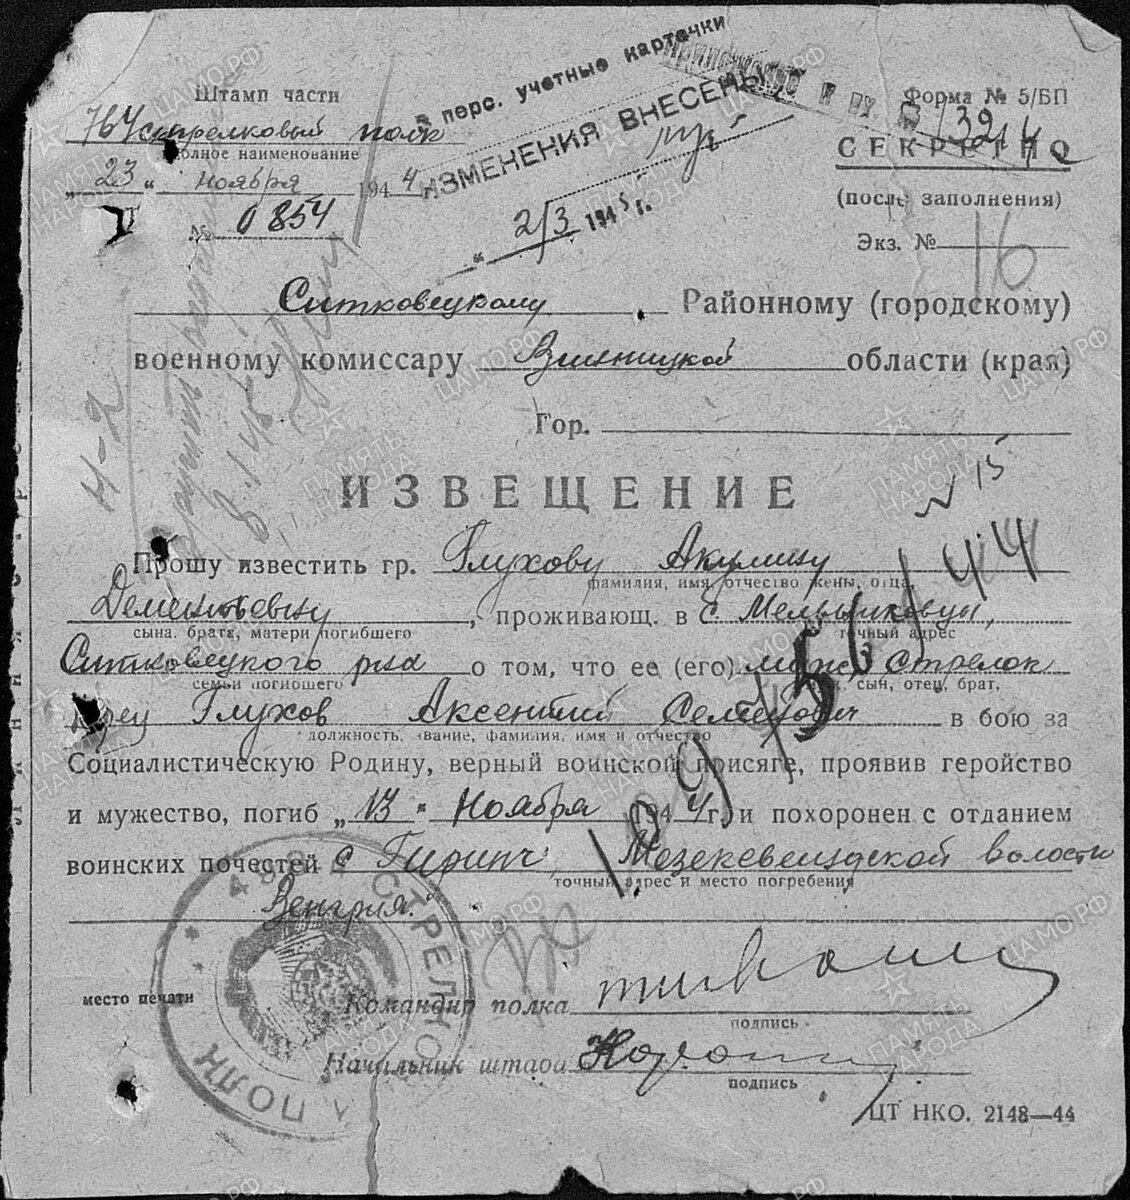 Штамп части
в перс. учетные карточки
ИЗМЕНЕНИЯ ВНЕСЕНЫ
2/3 1945 г.
Форма № 5/БП
764 стрелковый полк
полное наименование
„23“ ноября 1944 г.
№ 0854
СЕКРЕТНО
(после заполнения)
Экз. №
16
Ситковецкому Районному (городскому)
военному комиссару Винницкой области (края)
Гор.
Н-2
ИЗВЕЩЕНИЕ
N 15
Прошу известить гр. Глухову Акулину
фамилия, имя, отчество жены, отца,
Дементьевну, проживающ. в с. Мельниковцы,
сына, брата, матери погибшего
точный адрес
Ситковецкого р-на о том, что ее (его) муж, стрелок
семьи погибшего
сын, отец, брат,
Глухов Аксентий Семенович в бою за
должность, звание, фамилия, имя и отчество
Социалистическую Родину, верный воинской присяге, проявив геройство
и мужество, погиб „13“ ноября 1944 г. и похоронен с отданием
воинских почестей с. волости
точный адрес и место погребения
Венгрия.
место печати
Командир полка
подпись
Начальник штаба
подпись
ЦТ НКО. 2148—44
СТРЕЛКО
ПОЛК
ПАМЯТЬ НАРОДА
ЦАМО.РФ